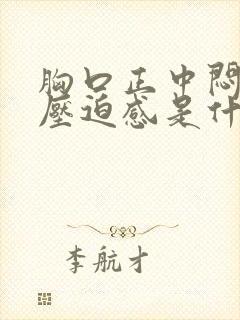 胸口正中悶
壓迫感是什
李航才